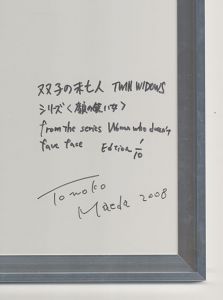 双子の未亡人 TWIN WIDOWS
シリーズ〈顔の無い女〉
from the series Woman who doesn't
have face Edition 1/10
Tomoko
Maeda 2008